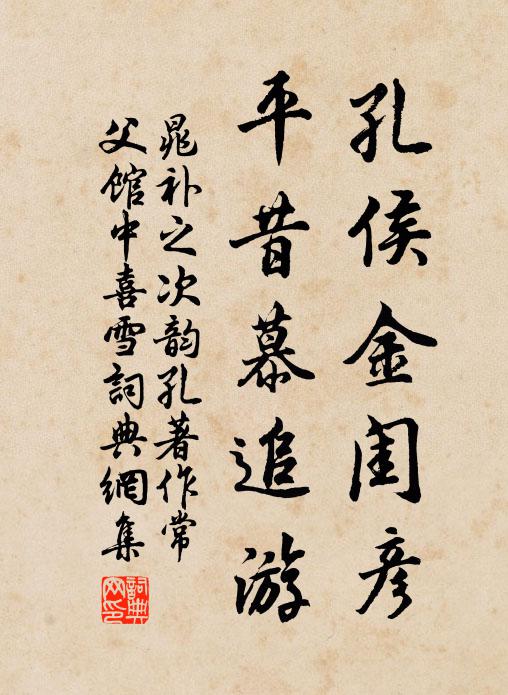 孔侯金闺彦
平昔慕追游
晁补之次韵孔著作常
父馆中喜雪詞典網集
詞典网印